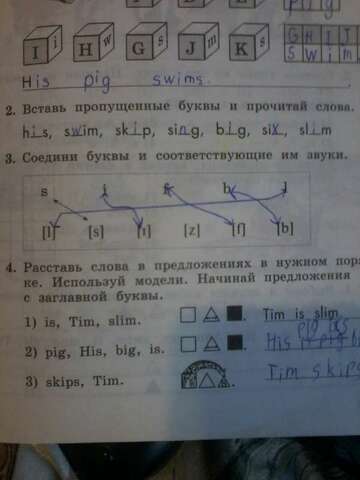 I i H w G s J m K s G H I J
S w i m
His pig swims.
2. Вставь пропущенные буквы и прочитай слова.
his, swim, skip, sing, big, six, slim
3. Соедини буквы и соответствующие им звуки.
s i f b l
[l] [s] [ɪ] [z] [f] [b]
4. Расставь слова в предложениях в нужном поряд-
ке. Используй модели. Начинай предложения
с заглавной буквы.
1) is, Tim, slim. Tim is slim
2) pig, His, big, is. His pig
3) skips, Tim. Tim skips